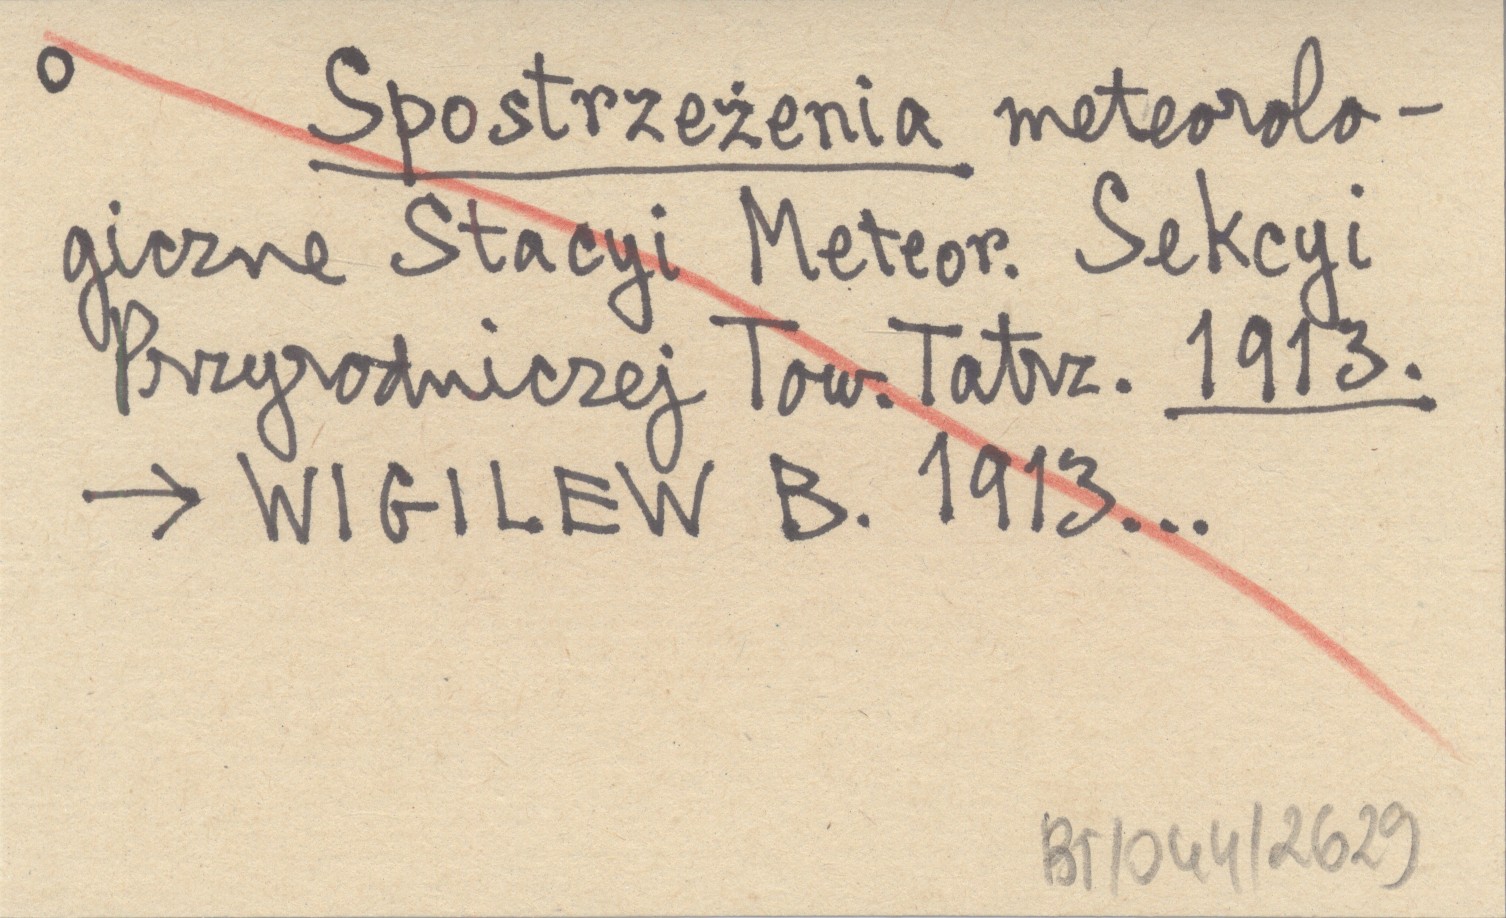 o Spostrzeżenia meteorolo-
giczne Stacyi Meteor. Sekcyi
Przyrodniczej Tow. Tatrz. 1913.
→ WIGILEW B. 1913...
BT/044/2629